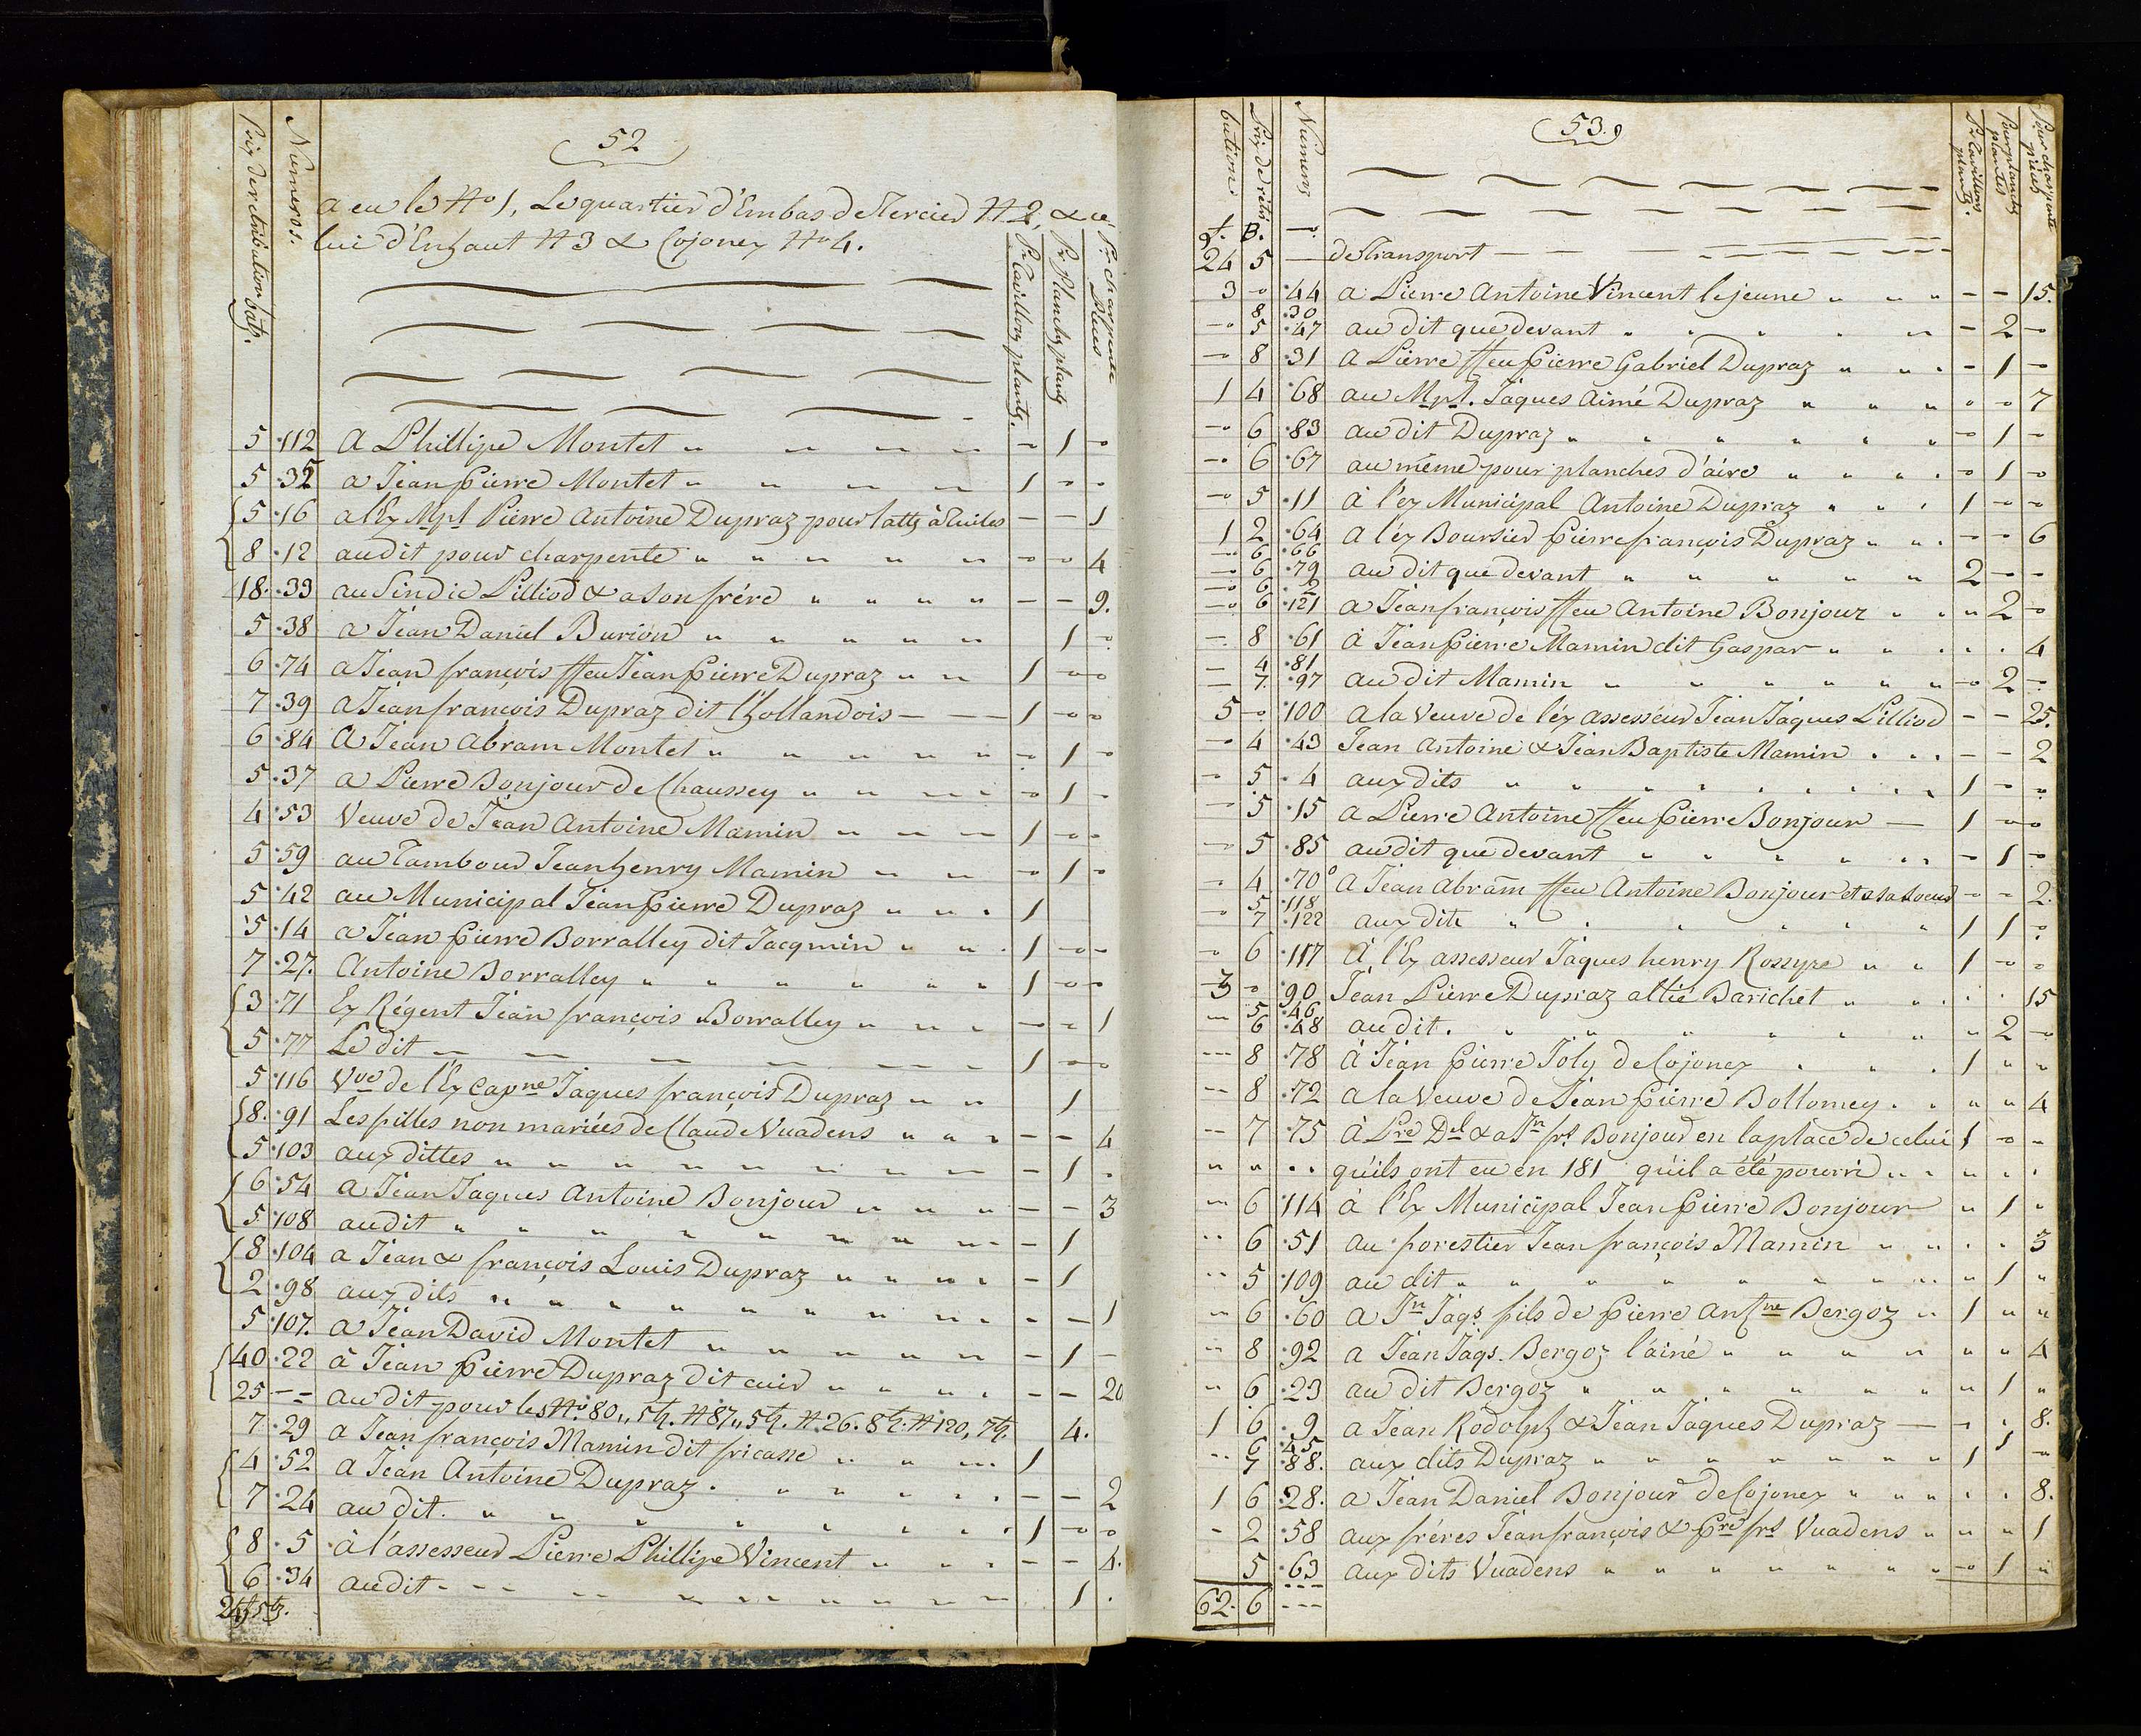 52
Prix de retribution batz.
Numeros.
a eu le No 1, Le quartier d'Embas de Tercier N 2, & ce
lui d'Enhaut N 3 & Cojonex No 4.
Pr Tavillons plants.
Pr Planches plants
Pr charpente Pieces
5 112 A Phillipe Montet " " " " - 1 -
5 35 a Jean Pierre Montet " " " " 1 - -
5 16 a l'Ex Mpl Pierre Antoine Dupraz pour latts à Tuiles - - 1
8 12 au dit pour charpente " " " " " - - 4
18. 33 au Sindic Pilliod & a son frére " " " " - - 9.
5 38 a Jean Daniel Burion " " " " " 1 -
6 74 a Jean françois ffeu Jean Pierre Dupraz " " 1 - -
7 39 a Jean françois Dupraz dit l'hollandois - - - 1 - -
6 84 A Jean Abram Montet " " " " " - 1 -
5 37 a Pierre Bonjour de Chaussey " " " " - 1 -
4 53 Veuve de Jean Antoine Mamin " " " 1 - -
5 59 au Tambour Jean henry Mamin " " - 1 -
5 42 au Municipal Jean Pierre Dupraz " " " 1
5 14 a Jean Pierre Borralley dit Jacqmin " " " 1 - -
7 27. Antoine Borralley " " " " " " 1 - -
3 71 Ex Régent Jean françois Borralley " " " - - 1
5 77 Le dit - - - - - - - 1 - -
5 116 Vve de l'Ex Capne Jaques françois Dupraz " " 1
8. 91 Les filles non mariées de Claude Vuadens " " " - - 4
5 103 aux dittes " " " " " " " " - 1 -
6 54 a Jean Jaques Antoine Bonjour " " " - - 3
5 108 au dit " " " " " " " " - 1
8 104 a Jean & françois Louis Dupraz " " " " - 1
2 98 aux dits " " " " " " " " " - - 1
5 107. a Jean David Montet " " " " " - 1 -
40 22 à Jean Pierre Dupraz dit cuir " " " " - - 20
25 - - au dit pour les No. 80 " 5 bz. N 87 " 5 bz. N. 26. 8 bz. N 120, 7 bz. 4.
7 29 a Jean françois Mamin dit fricasse " " " 1
4 52 a Jean Antoine Dupraz . " " " " " - - 2
7 24 au dit. " " " " " " " 1 - -
8 5 à l'assesseur Pierre Phillipe Vincent " " " - - 4.
6 34 au dit - - - - - " " " " " 1 .
24 f 5 bz.
53.
Prix de retri
bution.
Numeros
Pr tavillons plants.
Pour planches plantes
Pour charpente piéces
f. B. -
24 5 - de Transport - - - - - -
3 - 44 a Pierre Antoine Vincent le jeune " " " - - 15.
8 30
- 5 47 au dit que devant " " " " " - 2 -
- 8 31 a Pierre ffeu Pierre Gabriel Dupraz " " " - 1 -
1 4 68 au Mpl. Jaques Aimé Dupraz " " " - - 7
- 6 83 au dit Dupraz " " " " " " - 1 -
- 6 67 au même pour planches d'aire " " " " - 1 -
- 5 11 à l'ex Municipal Antoine Dupraz " " " 1 - -
1 2 64 a l'ex Boursier Pierre françois Dupraz " " " - - 6
- 6 66
- 6 79 au dit que devant " " " " " 2 - -
- 6 2
- 6 121 a Jean françois ffeu Antoine Bonjour " " " 2 -
- 8 61 à Jean Pierre Mamin dit Gaspar " " " . . 4
- 4 81
- 7 97 au dit Mamin " " " " " " - 2 -
5 - 100 a la Veuve de l'ex assesseur Jean Jaques Pilliod - - 25.
- 4 43 Jean Antoine & Jean Baptiste Mamin . . . - - 2
- 5 4 aux dits " " " " " " " " " 1 - -
- 5 15 a Pierre Antoine ffeu Pierre Bonjour - 1 - -
- 5 85 au dit que devant " " " " " " - 1 -
- 4 70 a Jean Abram ffeu Antoine Bonjour et a sa soeur - - 2.
5 118
- 7 122 aux dits " " " " " " 1 1 -
- 6 117 à l'Ex assesseur Jaques henry Rossyre " " 1 - -
3 - 90 Jean Pierre Dupraz allié Barichet " " . . . 15
5 46
- 6 48 au dit. " " " " " " 2 -
- 8 78 à Jean Pierre Joly de Cojonex . . . 1 " "
- 8 72 a la Veuve de Jean Pierre Bollomey . . " " 4
- 7 75 à Pre Dl & a Jn frs Bonjour en la place de celui 1 - -
" " . . qu'ils ont eu en 181 qu'il a été pourri " " " " .
- 6 114 à l'Ex Municipal Jean Pierre Bonjour " 1 "
- 6 51 au forestier Jean françois Mamin " " . . 3
- 5 109 au dit " " " " " " " " " 1 "
- 6 60 a Jn Jaqs fils de Pierre Antne Bergoz " 1 " "
- 8 92 a Jean Jaqs. Bergoz l'ainé " " " " " " 4
- 6 23 au dit Bergoz " " " " " " " 1 "
1 6 9 a Jean Rodolph & Jean Jaques Dupraz - - . 8.
6 45
- 7 88. aux dits Dupraz " " " " " " " 1 1 -
1 6 28. a Jean Daniel Bonjour de Cojonex " " " . . 8.
- 2 58 aux fréres Jean françois & Pre frs Vuadens " " " 1
5 63 aux dits Vuadens " " " " " " " - 1 "
62. 6 - - -